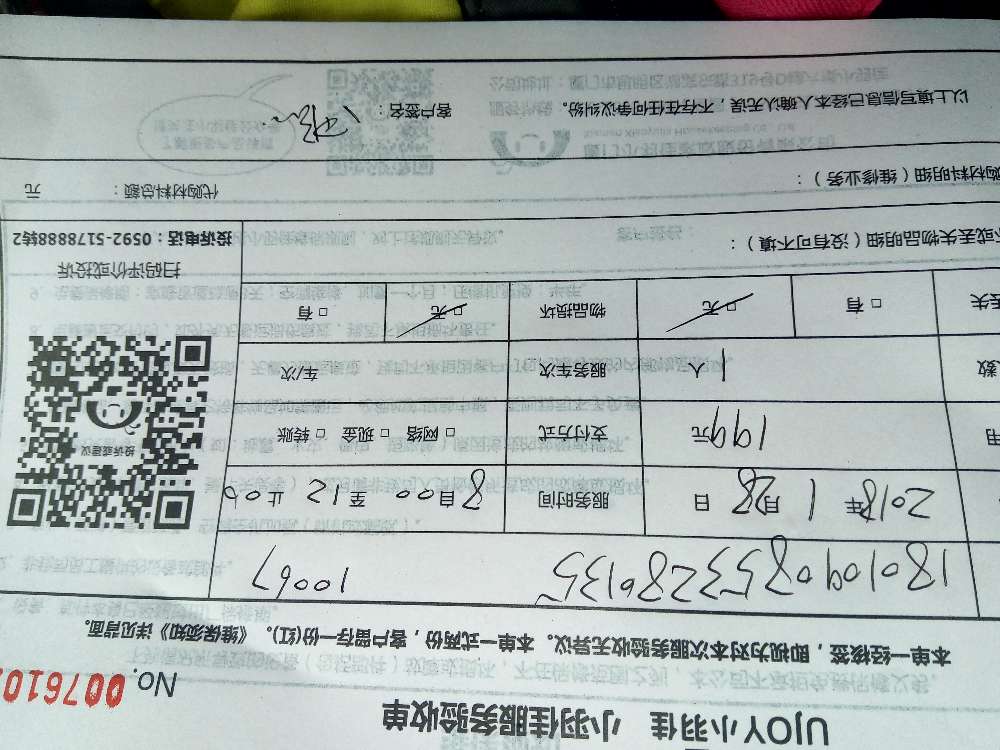 UJOY小羽佳 小羽佳服务验收单
No. 0076107
本单一经核签，即视为对本次服务验收无异议。本单一式两份，客户留存一份(红)。《维保须知》详见背面。
1801090853280135 10067
2018年1月28日 服务时间 8自00至12止00
用 199元 支付方式 □ 网络 □ 现金 □ 转账
数 1人 服务车次 车/次
丢失 □ 有 □ 无 物品损坏 □ 无 □ 有
投诉或建议
扫码评价或投诉
投诉电话：0592-5178888转2
坏或丢失物品明细（没有可不填）：
购材料明细（维修业务）：
代购材料总额： 元
以上填写信息已经本人确认无误，不存在任何争议纠纷。 客户签名：